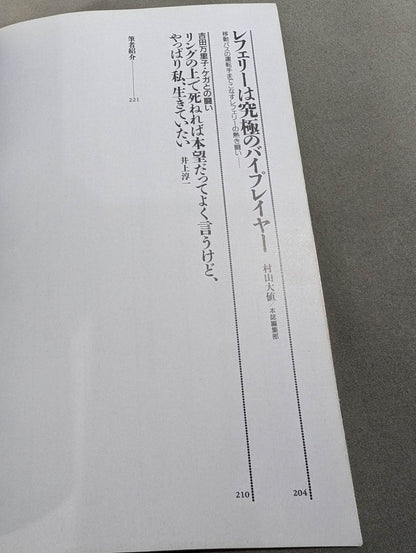 レフェリーは究極のバイプレイヤー
移動バスの運転手までこなすレフェリーの熱き闘い
村山大値 本誌編集部
204
吉田万里子・ケガとの闘い
リングの上で死ねれば本望だってよく言うけど、
やっぱり私、生きていたい
井上淳一
210
筆者紹介
221